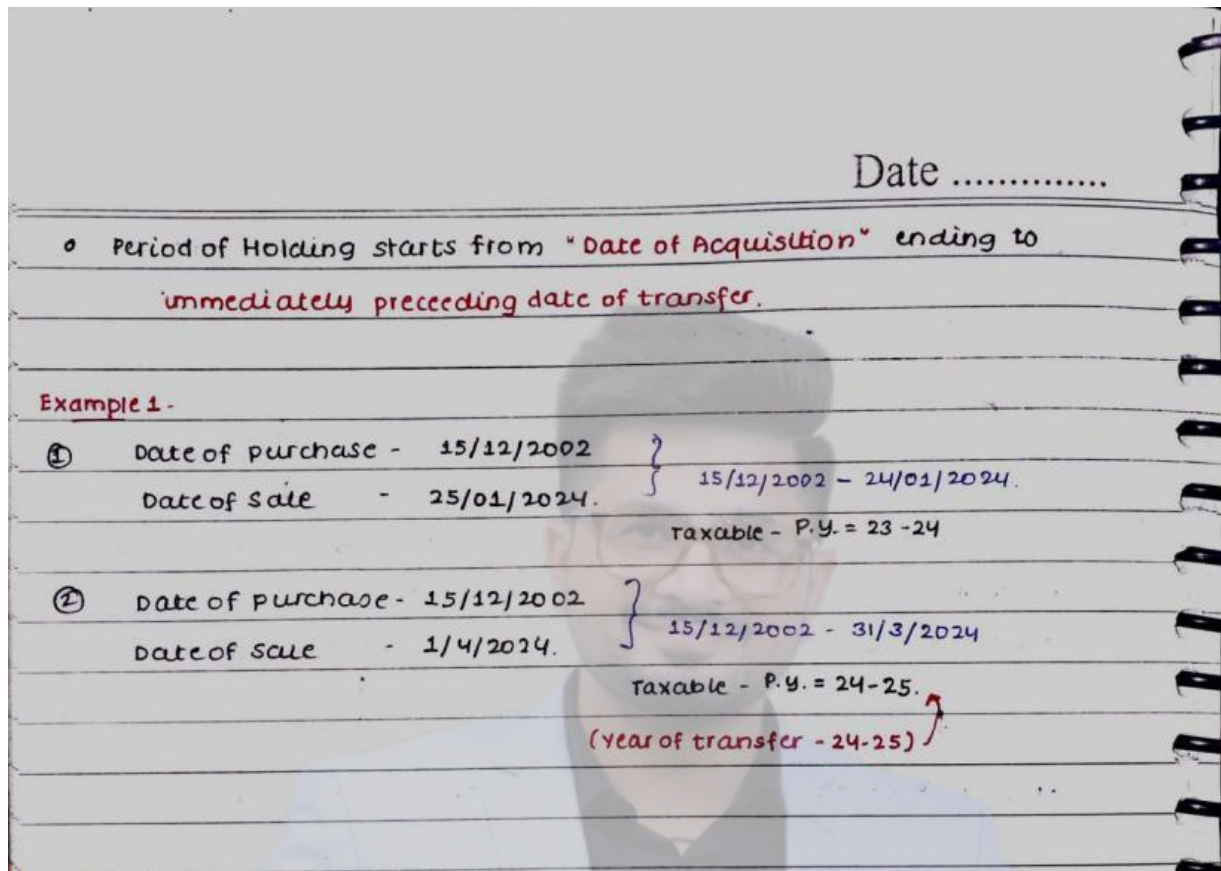 Date ..............
• Period of Holding starts from "Date of Acquisition" ending to
immediately preceeding date of transfer.
Example 1-
① Date of purchase - 15/12/2002
15/12/2002 - 24/01/2024.
Date of Sale - 25/01/2024.
Taxable - P.Y. = 23-24
② Date of Purchase - 15/12/2002
15/12/2002 - 31/3/2024
Date of Sale - 1/4/2024.
Taxable - P.Y. = 24-25.
(Year of transfer - 24-25)